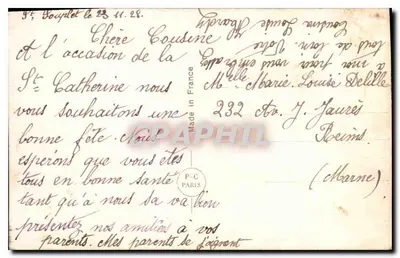 St. Souplet le 23 11. 28.
Chère Cousine
A l'occasion de la
Ste Catherine nous
vous souhaitons une
bonne fête. Nous
espérons que vous êtes
tous en bonne santé
tant qu'à nous sa va bien
présentez nos amitiés à vos
parents. Mes parents se joignent
à moi pour vous embrasser
tous de loin Votre
Cousine Louise
Melle Marie-Louise Delille
232 Av. J. Jaurès
Reims
(Marne)
Made in France
P-C
PARIS
CPARAMA